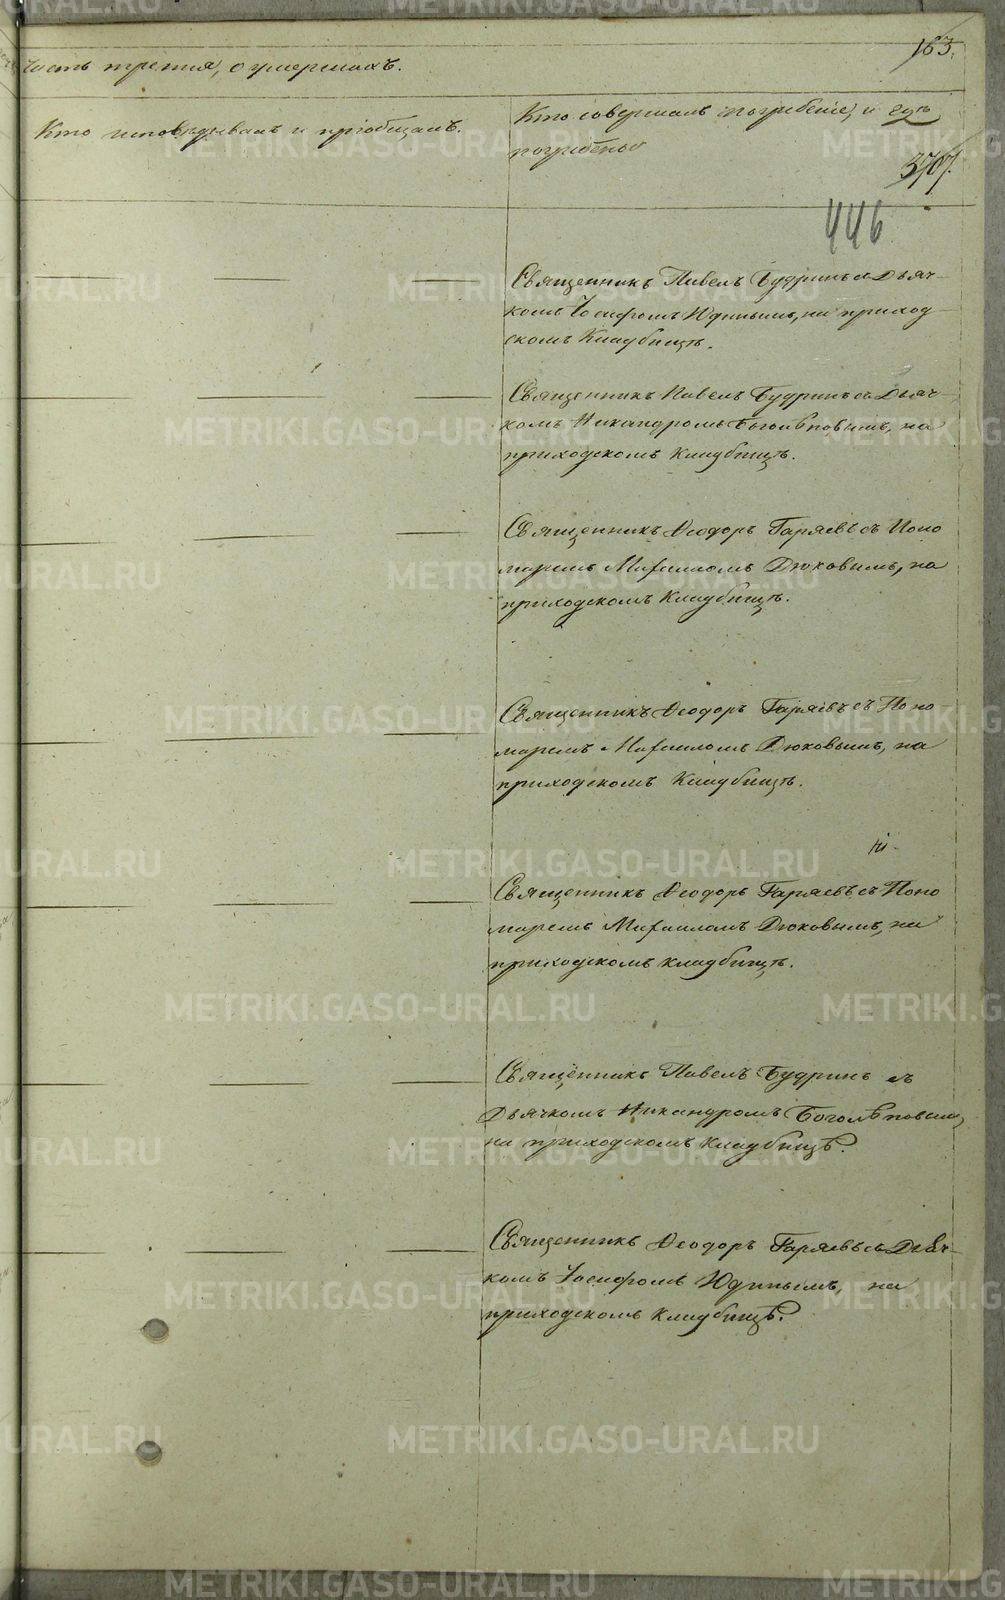 163.
Часть третия, о умершихъ.
Кто исповѣдывалъ и пріобщалъ.
Кто совершалъ погребеніе, и гдѣ
погребены
3707.
446
Священникъ Павелъ Будринъ съ Дьяч-
комъ Іосифомъ Юдинымъ, на приход-
скомъ Кладбищѣ.
Священникъ Павелъ Будринъ съ Дьяч-
комъ Никандромъ Боголѣповымъ, на
приходскомъ Кладбищѣ.
Священникъ Ѳеодоръ Гаряевъ съ Поно
маремъ Михаиломъ Дюковымъ, на
приходскомъ Кладбищѣ.
Священникъ Ѳеодоръ Гаряевъ съ Поно
маремъ Михаиломъ Дюковымъ, на
приходскомъ Кладбищѣ.
Священникъ Ѳеодоръ Гаряевъ съ Поно
маремъ Михаиломъ Дюковымъ, на
приходскомъ кладбищѣ.
Священникъ Павелъ Будринъ съ
Дьячкомъ Никандромъ Боголѣповымъ,
на приходскомъ кладбищѣ.
Священникъ Ѳеодоръ Гаряевъ съ Дьяч-
комъ Іосифомъ Юдинымъ, на
приходскомъ кладбищѣ.
METRIKI.GASO-URAL.RU